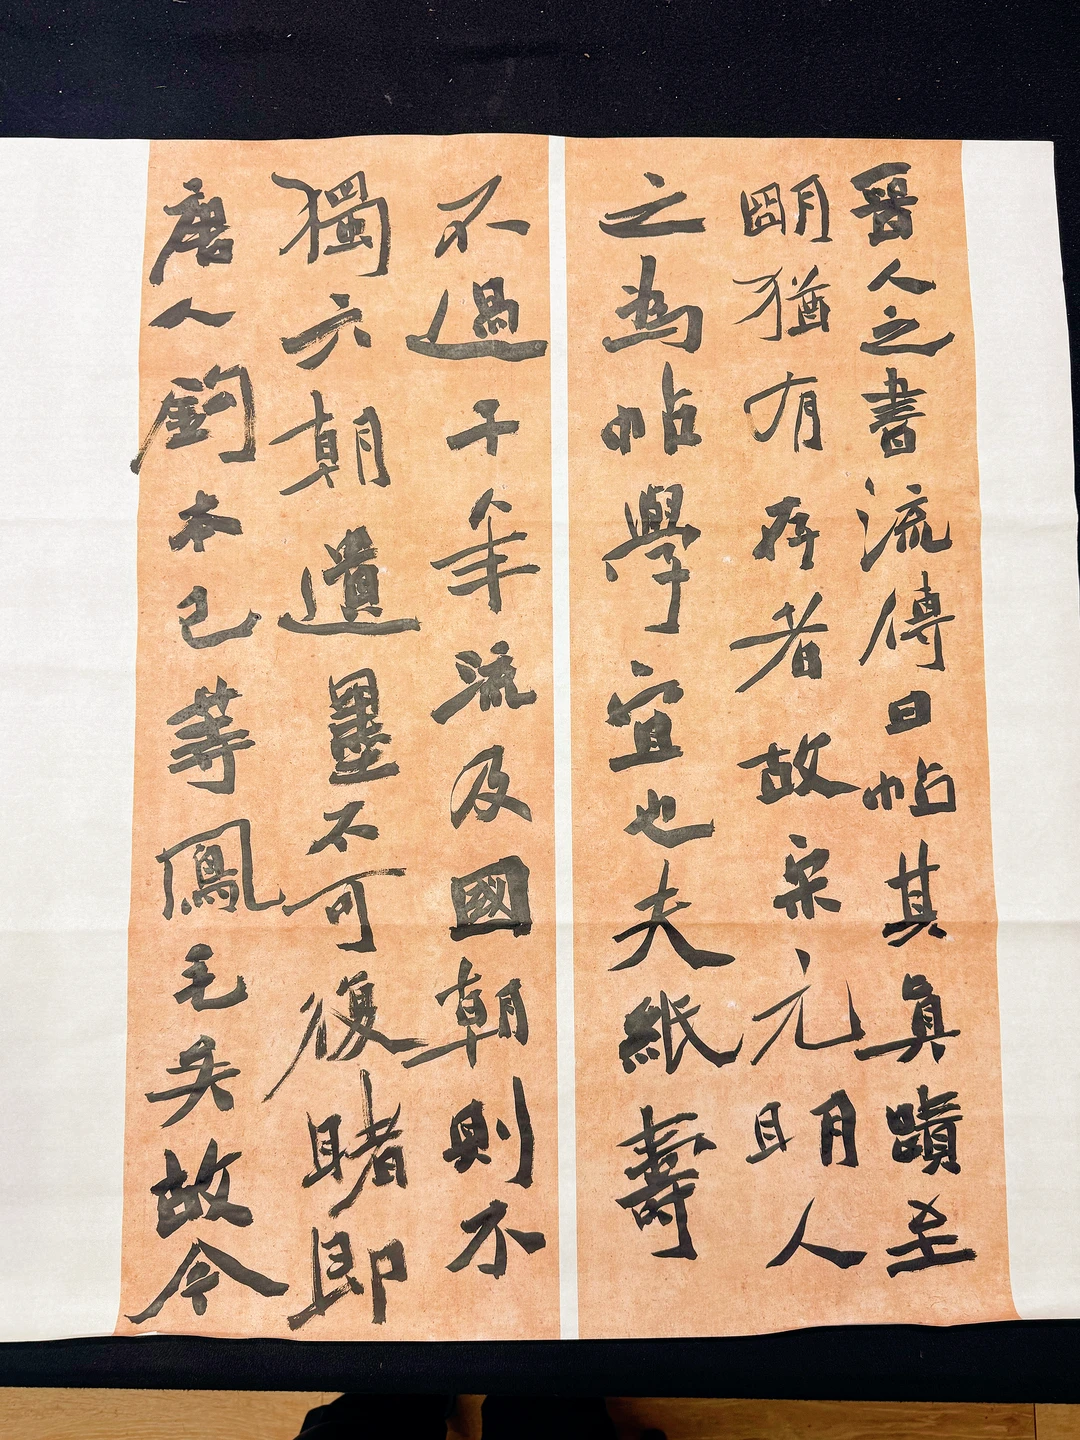 晉人之書流傳曰帖其眞蹟至
朙猶有存者故宋元眀人
之為帖學宜也夫紙壽
不過千年流及國朝則不
獨六朝遺墨不可復睹即
唐人鈎本已等鳳毛矣故今